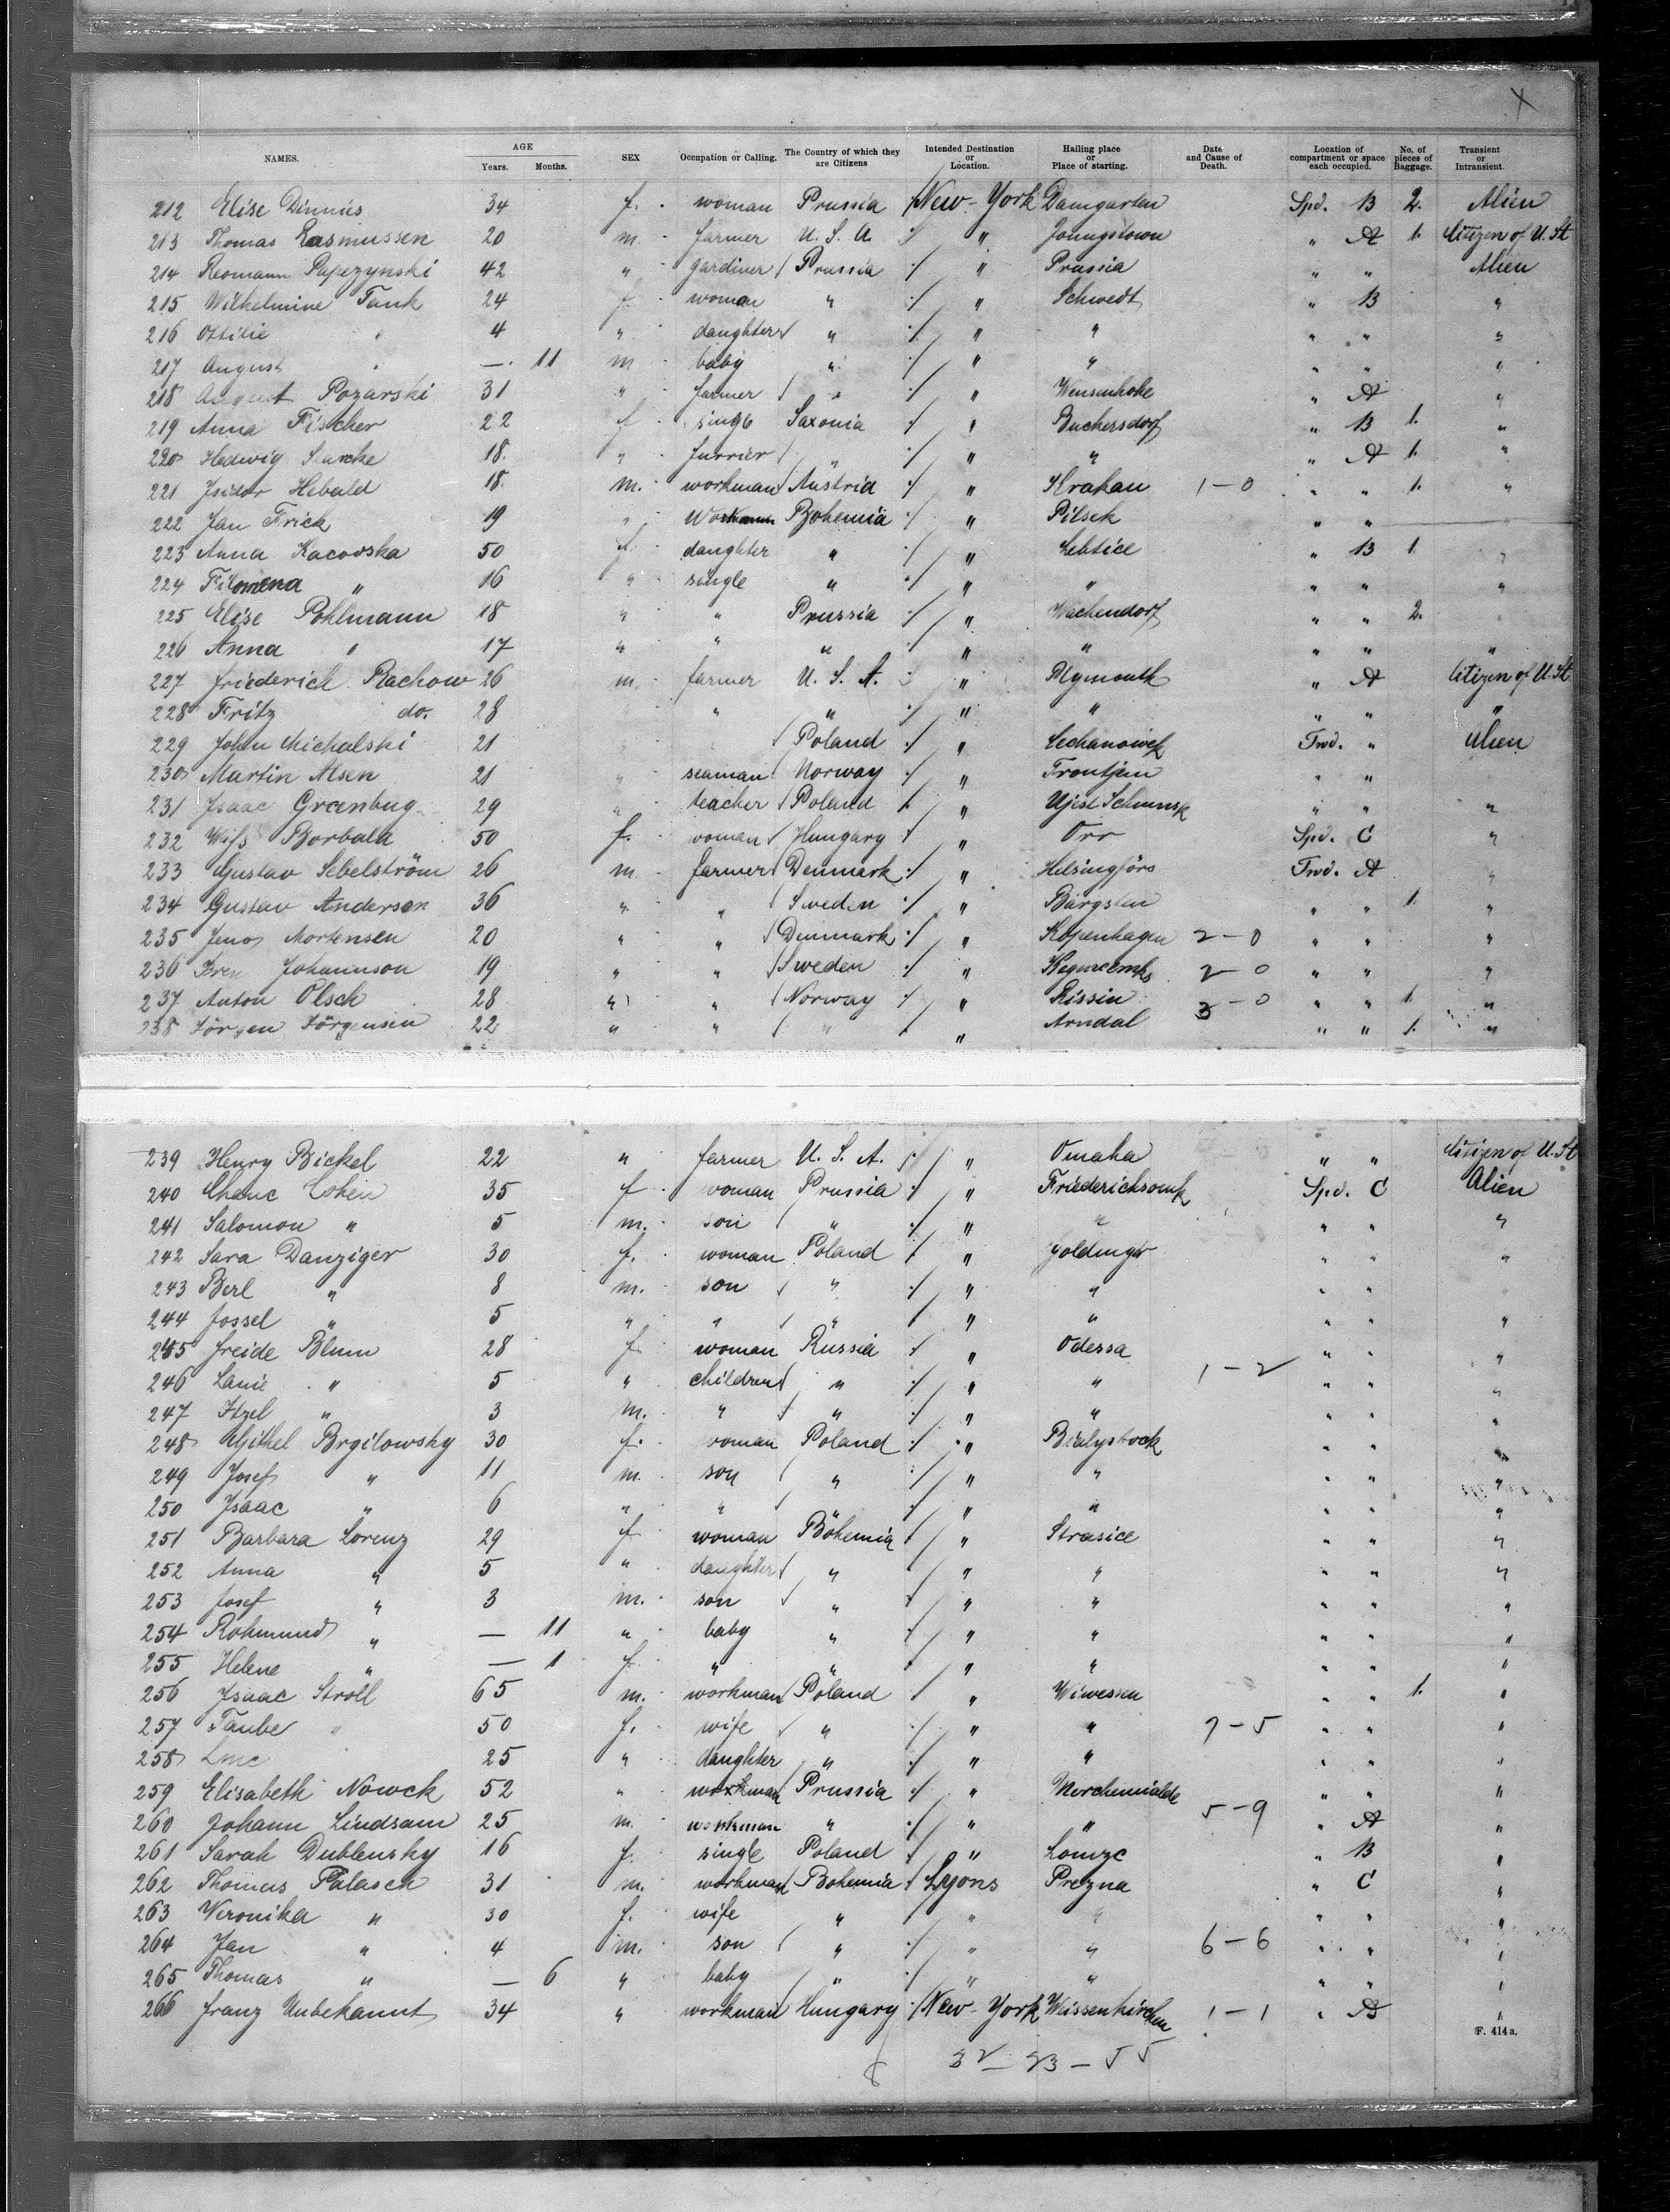 X
NAMES. AGE Years. Months. SEX Occupation or Calling. The Country of which they are Citizens Intended Destination or Location. Hailing place or Place of starting. Date and Cause of Death. Location of compartment or space each occupied. No. of pieces of Baggage. Transient or Intransient.
212 Elise 34 f. woman Prussia New-York Damgarten Spd. B 2. Alien
213 Thomas Rasmussen 20 m. farmer U. S. A. " Youngstown " A 1. Citizen of U. St
214 Papezynski 42 " gardiner Prussia " Prussia " " Alien
215 Wilhelmine Tank 24 f. woman " " Schwedt " B "
216 Ottilie " 4 " daughter " " " " " "
217 August " — 11 m baby " " " " " "
218 August Pozarski 31 " farmer " " " A "
219 Anna Fischer 22 f single Saxonia " Buchersdorf " B 1. "
220 Hedwig Starcke 18. " furrier " " " " A 1. "
221 Isidor Hebald 18. m. workman Austria " Krakau 1-0 " " 1. "
222 Jan Frick 19 " Workman Bohemia " Pilsek " "
223 Anna Kacovska 50 f. daughter " " " B 1 "
224 Filomena " 16 " single " " " " " "
225 Elise Pohlmann 18 " " Prussia " Wachendorf " " 2. "
226 Anna " 17 " " " " " " " "
227 Friederich Rachow 26 m. farmer U. S. A. " Plymouth " A Citizen of U. St
228 Fritz do. 28 " " " " " " "
229 John Michalski 21 Poland " Fwd. " Alien
230 Martin Alsen 21 " seaman Norway " Trontjem " "
231 Isaac Greenbug 29 " teacher Poland " " " "
232 Borbala 50 f. woman Hungary " Orr Spd. C "
233 Gustav Sebelström 26 m. farmer Denmark " Helsingförs Fwd. A "
234 Gustav Andersen 36 " " Sweden " " " 1. "
235 Jens Mortensen 20 " " Denmark " Kopenhagen 2-0 " " "
236 Johannson 19 " " Sweden " 2-0 " " "
237 Anton Olsch 28 " " Norway " Rissin 3-0 " " 1. "
238 Jörgen Jörgensen 22 " " " " Arndal " " 1. "
239 Henry Bickel 22 " farmer U. S. A. " Omaha " " Citizen of U. St
240 Chane Cohen 35 f woman Prussia " Spd. C Alien
241 Salomon " 5 m. son " " " " " "
242 Sara Danziger 30 f. woman Poland " Goldinger " " "
243 Berl " 8 m. son " " " " "
244 Jossel " 5 " " " " " " " "
245 Freide Blum 28 f woman Russia " Odessa " " "
246 " 5 " children " " " 1-2 " " "
247 Itzel " 3 m. " " " " " " "
248 Brgilowsky 30 f. woman Poland " Bialystock " " "
249 Josef " 11 m. son " " " " " "
250 Isaac " 6 " " " " " " "
251 Barbara Lorenz 29 f woman Böhemia " Strasice " " "
252 Anna " 5 " daughter " " " " " "
253 Josef " 3 m. son " " " " " "
254 " — 11 " baby " " " " " "
255 Helene " — 1 f. " " " " " " "
256 Isaac Stroll 65 m. workman Poland " Wiwessen " " 1. "
257 Taube " 50 f. wife " " " 7-5 " " "
258 25 " daughter " " " " " "
259 Elisabeth Nowck 52 " workman Prussia " " " "
260 Johann Lindsam 25 m. workman " " " 5-9 " A "
261 Sarah Dublensky 16 f. single Poland " " B "
262 Thomas Palasek 31 m. workman Bohemia Lyons Prezna " C "
263 Veronika " 30 f. wife " " " " " "
264 Jan " 4 m. son " " " 6-6 " " "
265 Thomas " — 6 " baby " " " " " "
266 Franz Unbekannt 34 " workman Hungary New-York Weissenkirchen 1-1 " A "
F. 414a.
32 - 23 - 55